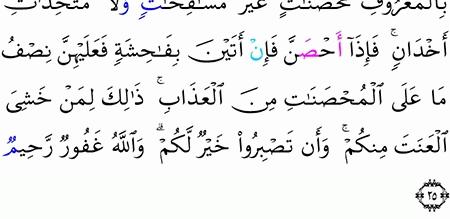 بِالْمَعْرُوفِ مُحْصَنَاتٍ غَيْرَ مُسَافِحَاتٍ وَلَا مُتَّخِذَاتِ
أَخْدَانٍ ۚ فَإِذَآ أَحْصَنَّ فَإِنْ أَتَيْنَ بِفَاحِشَةٍ فَعَلَيْهِنَّ نِصْفُ
مَا عَلَى الْمُحْصَنَاتِ مِنَ الْعَذَابِ ۚ ذَٰلِكَ لِمَنْ خَشِيَ
الْعَنَتَ مِنكُمْ ۚ وَأَن تَصْبِرُوا۟ خَيْرٌ لَّكُمْ ۗ وَاللَّهُ غَفُورٌ رَّحِيمٌ
٢٥